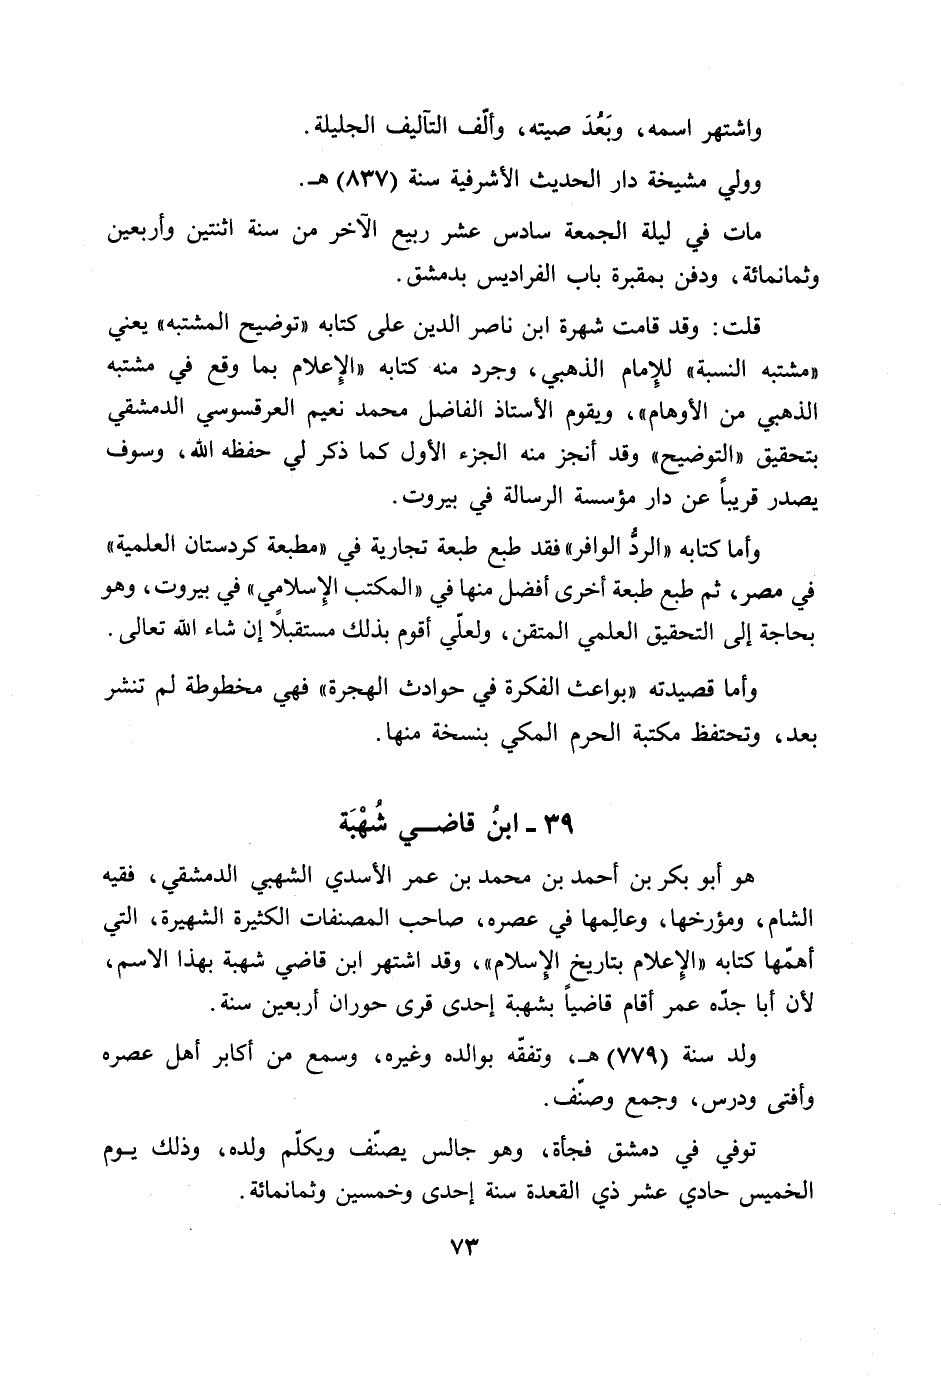 واشتهر اسمه، وبَعُدَ صيته، وألّف التآليف الجليلة.
وولي مشيخة دار الحديث الأشرفية سنة (٨٣٧) هـ.
مات في ليلة الجمعة سادس عشر ربيع الآخر من سنة اثنتين وأربعين
وثمانمائة، ودفن بمقبرة باب الفراديس بدمشق.
قلت: وقد قامت شهرة ابن ناصر الدين على كتابه «توضيح المشتبه» يعني
«مشتبه النسبة» للإمام الذهبي، وجرد منه كتابه «الإعلام بما وقع في مشتبه
الذهبي من الأوهام»، ويقوم الأستاذ الفاضل محمد نعيم العرقسوسي الدمشقي
بتحقيق «التوضيح» وقد أنجز منه الجزء الأول كما ذكر لي حفظه الله، وسوف
يصدر قريباً عن دار مؤسسة الرسالة في بيروت.
وأما كتابه «الردُّ الوافر» فقد طبع طبعة تجارية في «مطبعة كردستان العلمية»
في مصر، ثم طبع طبعة أخرى أفضل منها في «المكتب الإسلامي» في بيروت، وهو
بحاجة إلى التحقيق العلمي المتقن، ولعلّي أقوم بذلك مستقبلاً إن شاء الله تعالى.
وأما قصيدته «بواعث الفكرة في حوادث الهجرة» فهي مخطوطة لم تنشر
بعد، وتحتفظ مكتبة الحرم المكي بنسخة منها.
٣٩ - ابنُ قاضي شُهْبَة
هو أبو بكر بن أحمد بن محمد بن عمر الأسدي الشهبي الدمشقي، فقيه
الشام، ومؤرخها، وعالِمها في عصره، صاحب المصنفات الكثيرة الشهيرة، التي
أهمّها كتابه «الإعلام بتاريخ الإسلام»، وقد اشتهر ابن قاضي شهبة بهذا الاسم،
لأن أبا جدّه عمر أقام قاضياً بشهبة إحدى قرى حوران أربعين سنة.
ولد سنة (٧٧٩) هـ، وتفقّه بوالده وغيره، وسمع من أكابر أهل عصره
وأفتى ودرس، وجمع وصنّف.
توفي في دمشق فجأة، وهو جالس يصنّف ويكلّم ولده، وذلك يوم
الخميس حادي عشر ذي القعدة سنة إحدى وخمسين وثمانمائة.
٧٣